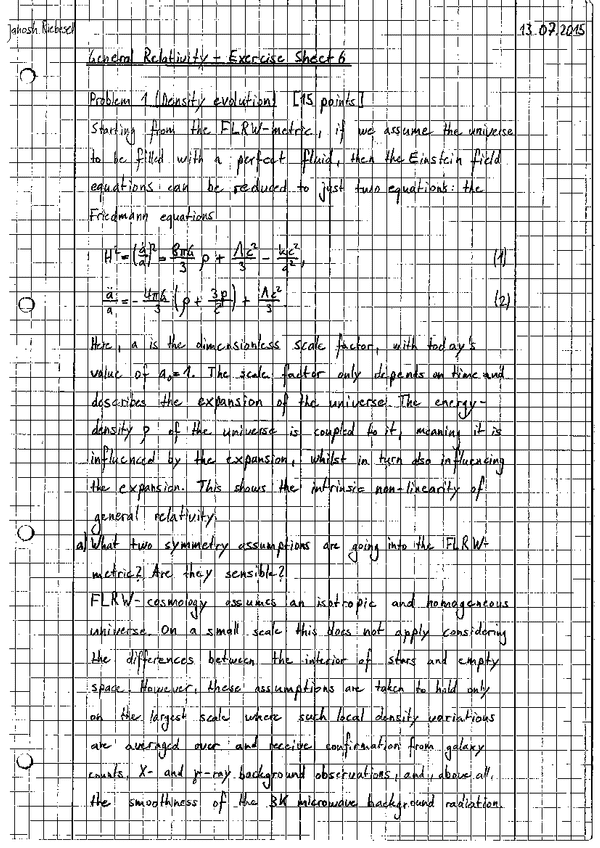 Janosh Riebesell
13.07.2015
General Relativity - Exercise Sheet 6
Problem 1 (Density evolution) [15 points]
Starting from the FLRW-metric, if we assume the universe
to be filled with a perfect fluid, then the Einstein field
equations can be reduced to just two equations: the
Friedmann equations
H² = (ȧ/a)² = 8πG/3 ρ + Λc²/3 - kc²/a², (1)
ä/a = - 4πG/3 (ρ + 3p/c²) + Λc²/3. (2)
Here, a is the dimensionless scale factor, with today's
value of a₀=1. The scale factor only depends on time and
describes the expansion of the universe. The energy-
density ρ of the universe is coupled to it, meaning it is
influenced by the expansion, whilst in turn also influencing
the expansion. This shows the intrinsic non-linearity of
general relativity.
a) What two symmetry assumptions are going into the FLRW-
metric? Are they sensible?
FLRW-cosmology assumes an isotropic and homogeneous
universe. On a small scale this does not apply considering
the differences between the interior of stars and empty
space. However, these assumptions are taken to hold only
on the largest scale where such local density variations
are averaged over and receive confirmation from galaxy
counts, X- and γ-ray background observations, and, above all,
the smoothness of the 3K microwave background radiation.